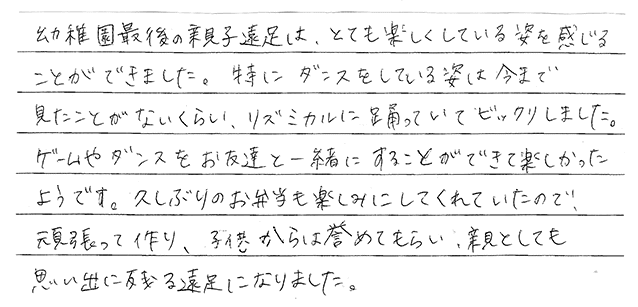 幼稚園最後の親子遠足は、とても楽しくしている姿を感じる
ことができました。特にダンスをしている姿は今まで
見たことがないくらい、リズミカルに踊っていてビックリしました。
ゲームやダンスをお友達と一緒にすることができて楽しかった
ようです。久しぶりのお弁当も楽しみにしてくれていたので、
頑張って作り、子供からは誉めてもらい、親としても
思い出に残る遠足になりました。